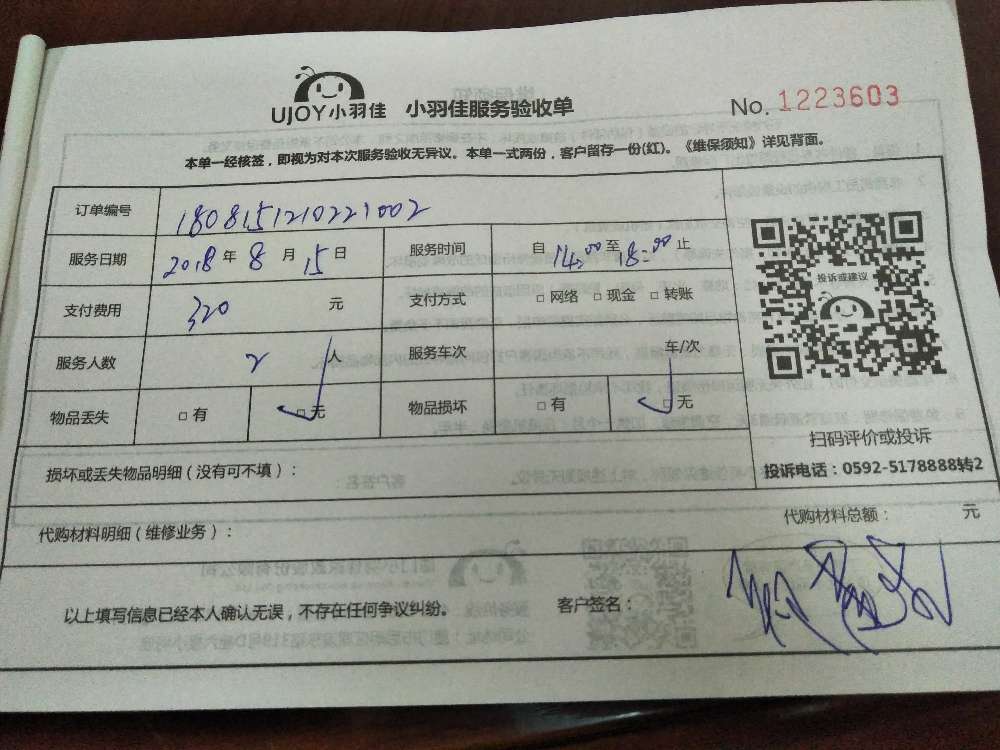 UJOY小羽佳 小羽佳服务验收单 No. 1223603
本单一经核签，即视为对本次服务验收无异议。本单一式两份，客户留存一份(红)。《维保须知》详见背面。
订单编号 1808151210221002
服务日期 2018 年 8 月 15 日 服务时间 自 14:00 至 18:00 止
支付费用 320 元 支付方式 □ 网络 □ 现金 □ 转账
投诉或建议
服务人数 2 人 服务车次 车/次
物品丢失 □ 有 □ 无 物品损坏 □ 有 □ 无
扫码评价或投诉
损坏或丢失物品明细（没有可不填）：
投诉电话：0592-5178888转2
代购材料明细（维修业务）： 代购材料总额： 元
以上填写信息已经本人确认无误，不存在任何争议纠纷。 客户签名：